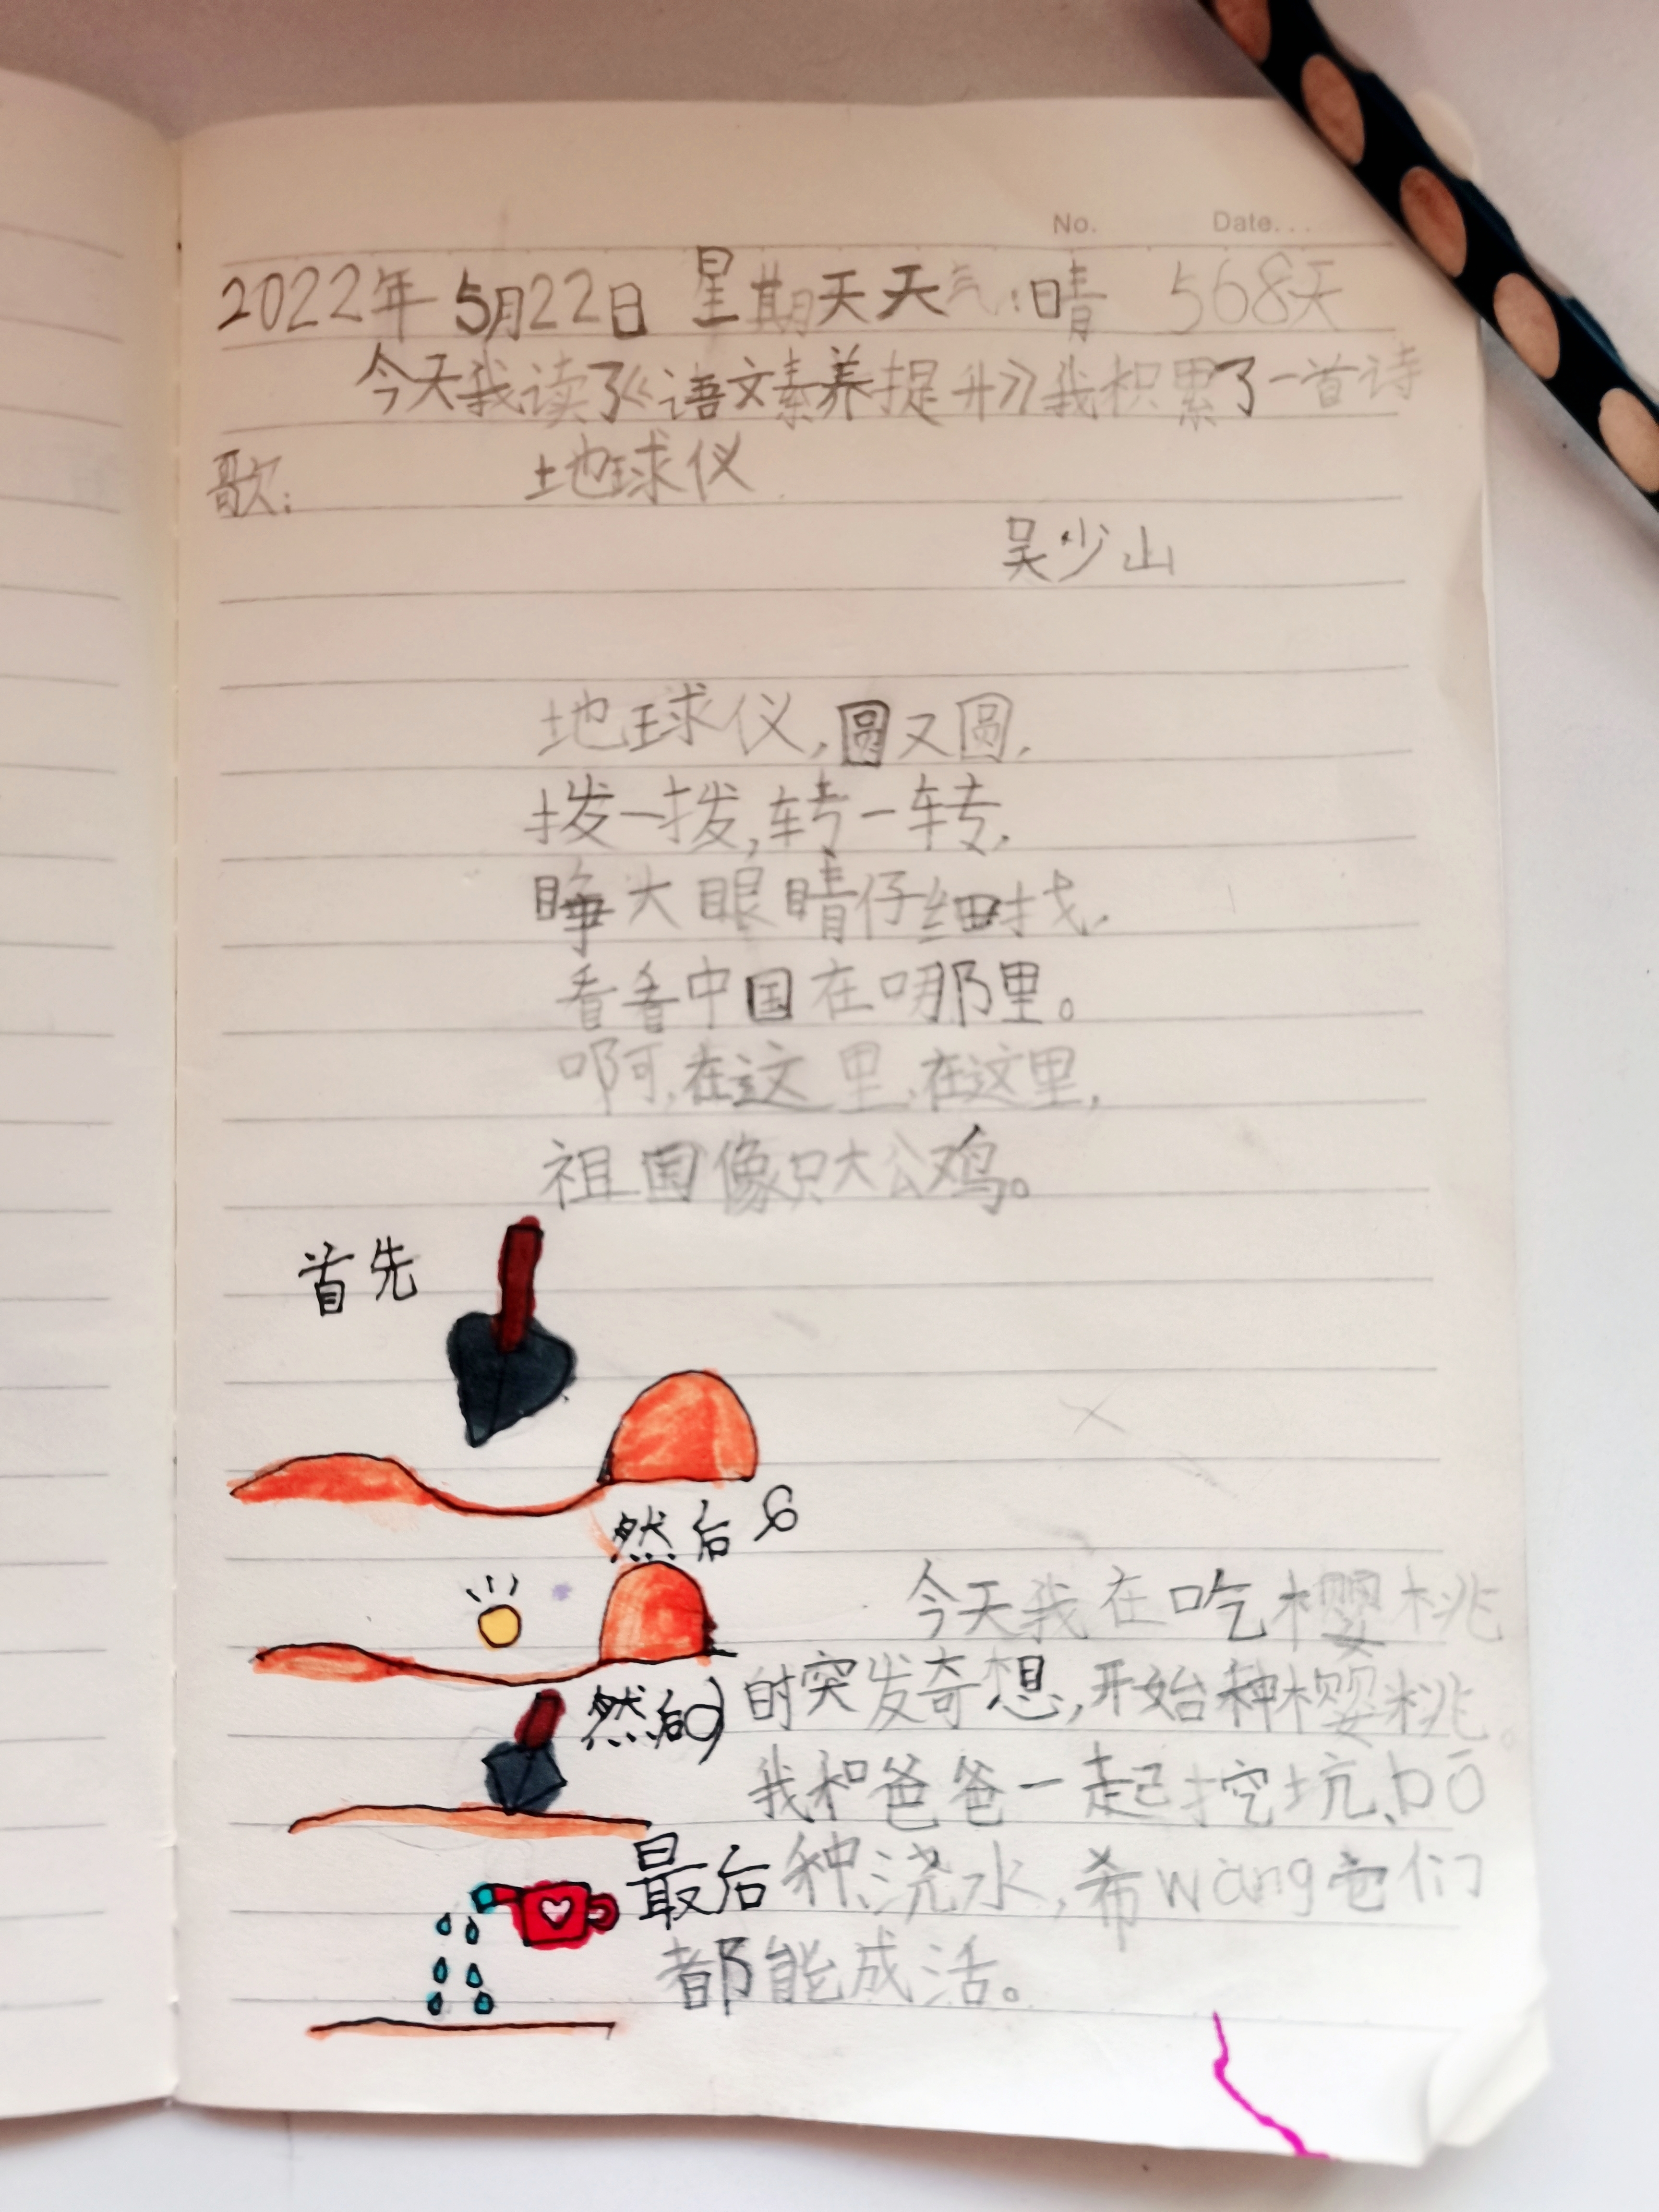 No. Date...
2022年5月22日 星期天天气:晴 568天
今天我读了《语文素养提升》我积累了一首诗
歌: 地球仪
吴少山
地球仪,圆又圆,
拨一拨,转一转,
睁大眼睛仔细找,
看看中国在哪里。
啊,在这里,在这里,
祖国像只大公鸡。
首先
然后
今天我在吃樱桃
然后
时突发奇想,开始种樱桃。
我和爸爸一起挖坑、bō
最后
种、浇水,希wàng它们
都能成活。